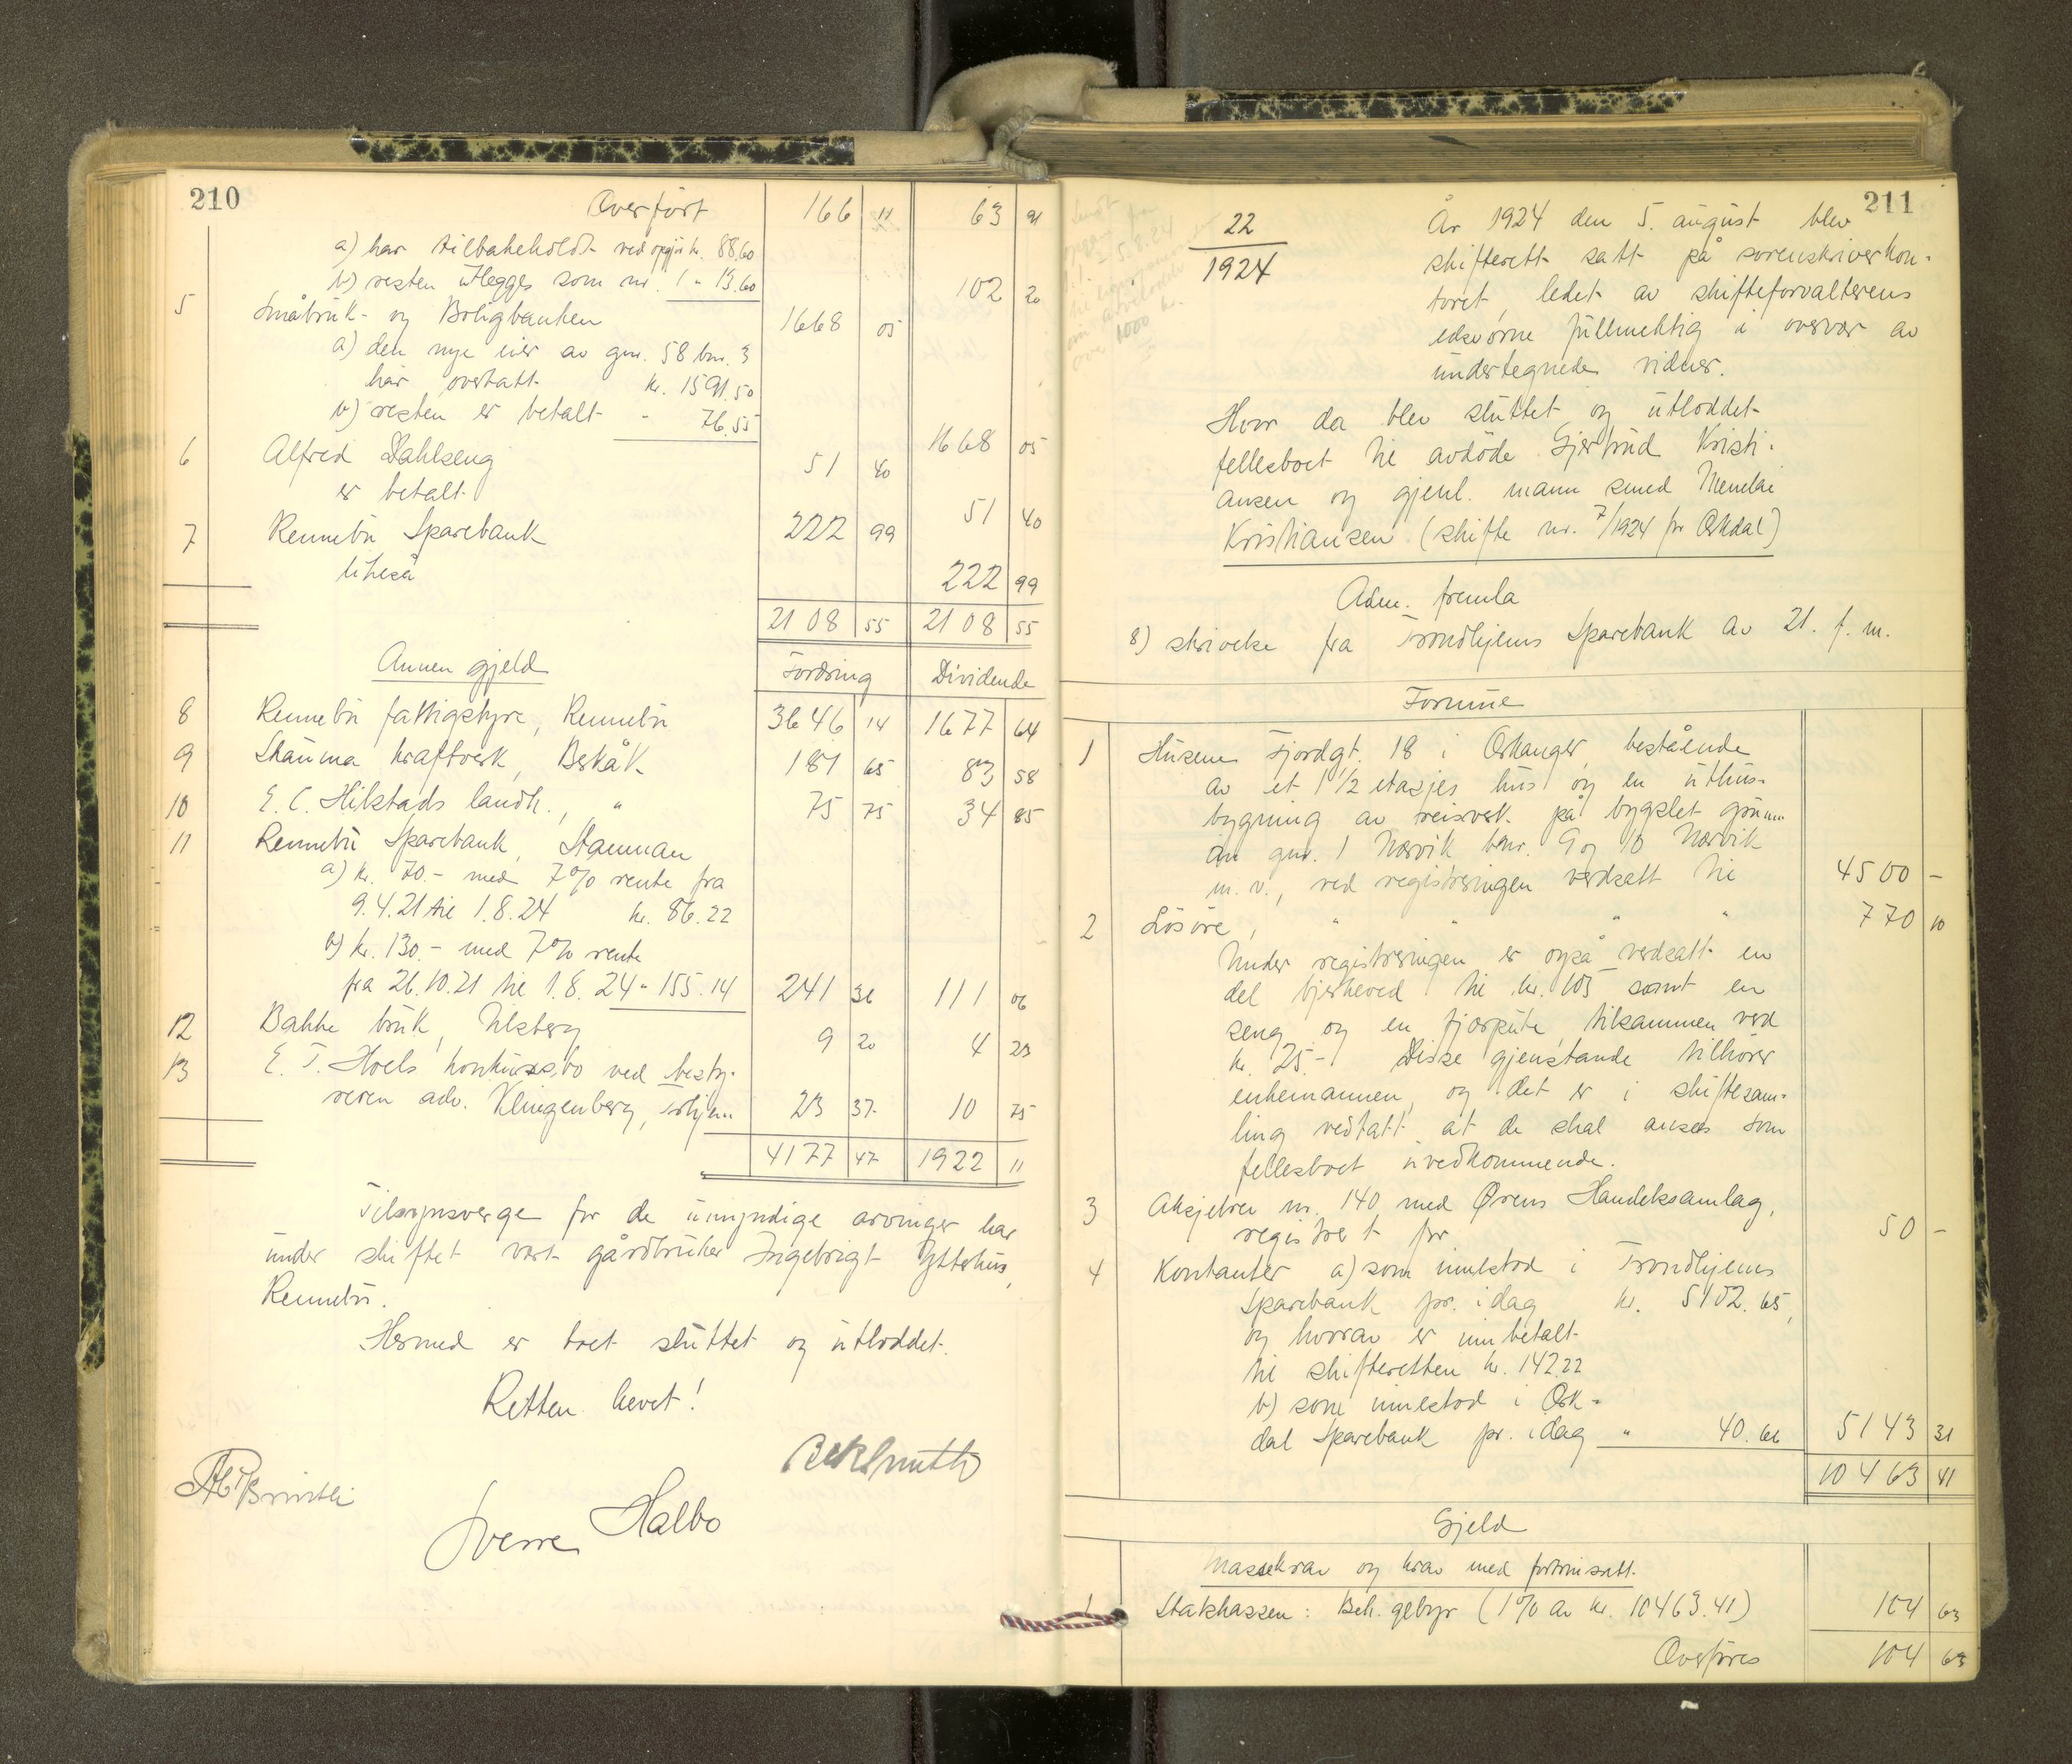 210
Overført 166 11 63 91
a) har tilbakeholdt ved oppgjør kr. 88.60
b) resten utlegges som nr. 1 " 13.60 102 20
5 Småbruk- og Boligbanken 1668 05
a) den nye eier av gnr. 58 bnr. 3
har overtatt kr. 1591.50
b) resten er betalt " 76.55 1668 05
6 Alfred Dahlseng 51 40
er betalt 51 40
7 Rennebu Sparebank 222 99
likeså 222 99
2108 55 2108 55
Annen gjeld Fordring Dividende
8 Rennebu fattigstyre, Rennebu 3646 14 1677 64
9 Skauma kraftverk, Berkåk 181 65 83 58
10 E. C. Hilstads landh., " 75 75 34 85
11 Rennebu Sparebank, Stamnan
a) kr. 70.- med 7% rente fra
9.4.21 til 1.8.24 kr. 86.22
b) kr. 130.- med 7% rente
fra 26.10.21 til 1.8.24 " 155.14 241 36 111 06
12 Bakke bruk, Ulsberg 9 20 4 23
13 E. T. Hoels konkursbo ved besty-
reren adv. Klingenberg, Trhjem 23 37 10 75
4177 47 1922 11
Tilsynsverge for de umyndige arvinger har
under skiftet vært gårdbruker Ingebrigt Ytterhus,
Rennebu.
Hermed er boet sluttet og utloddet.
Retten hevet!
Sverre Halbo
211
22
1924
År 1924 den 5. august blev
skifterett satt på sorenskriverkon-
toret, ledet av skifteforvalterens
edsvorne fullmektig i overvær av
undertegnede vidner.
Hvor da blev sluttet og utloddet
fellesboet til avdøde Gjertrud Kristi-
ansen og gjenl. mann smed Menelai
Kristiansen (skifte nr. 7/1924 for Orkdal)
Adm. fremla
8) skrivelse fra Trondhjems Sparebank av 21. f. m.
Formue
1 Husene Fjordgt. 18 i Orkanger, bestående
av et 1 1/2 etasjes hus og en uthus-
bygning av reisverk på bygslet grunn
av gnr. 1 Nervik bnr. 9 og 10 Nervik
m. v., ved registreringen verdsatt til 4500 -
2 Løsøre, " " " " 770 10
Under registreringen er også verdsatt en
del bjerkeved til kr. 105 samt en
seng og en fjørpute, tilsammen verd
kr. 25.- Disse gjenstande tilhører
enkemannen, og det er i skiftesam-
ling vedtatt at de skal anses som
fellesboet uvedkommende.
3 Aksjebrev nr. 140 med Ørens Handelsamlag,
registrert for 50 -
4 Kontanter a) som innestod i Trondhjems
Sparebank pr. idag kr. 5102.65,
og hvorav er innbetalt
til skifteretten kr. 142.22
b) som innestod i Ork-
dal Sparebank pr. idag " 40.66 5143 31
10463 41
Gjeld
Massekrav og krav med fortrinsrett.
1 Statskassen: Beh. gebyr (1% av kr. 10463.41) 104 63
Overføres 104 63